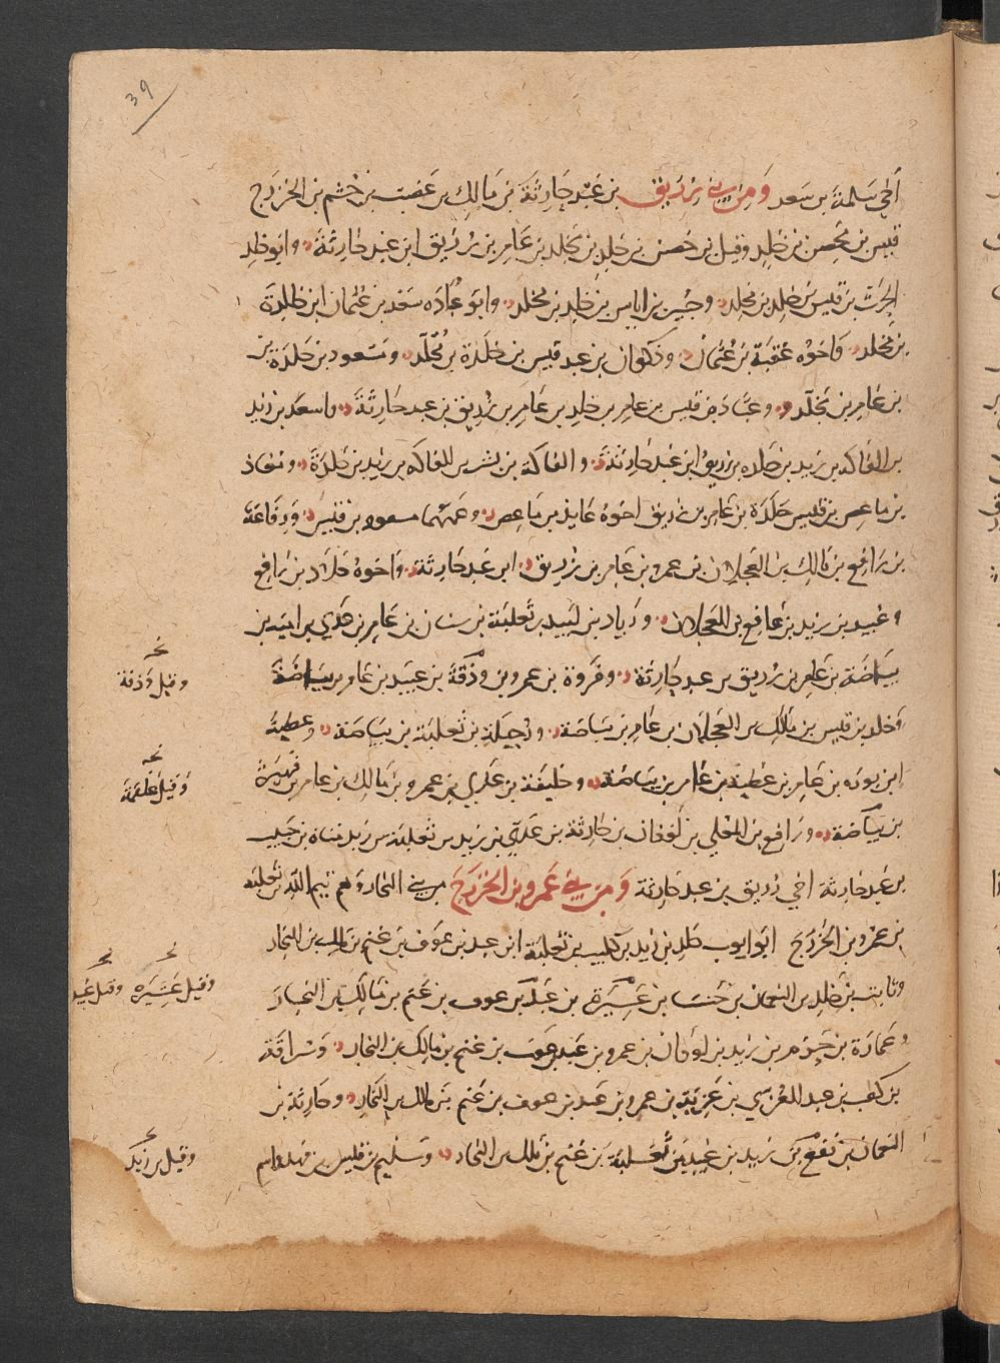 39
أخي سلمة بن سعد ومن بني زريق بن عبد حارثة بن مالك بن غضب بن جشم بن الخزرج
قيس بن محصن بن خلد وقيل بن حصن بن خلد بن مخلد بن عامر بن زريق ابن عبد حارثة وابو خلد
الحرث بن قيس بن خلد بن مخلد وجبير بن اياس بن خلد بن مخلد وابو عباده سعد بن عثمان ابن خلدة
بن مخلد واخوه عقبة بن عثمان وذكوان بن عبد قيس بن خلدة بن مخلد ومسعود بن خلدة بن
بن عامر بن مخلد وعباد بن قيس بن عامر بن خلد بن عامر بن زريق بن عبد حارثة واسعد بن زيد
بن الفاكه بن زيد بن خلده بن زريق ابن عبد حارثة والفاكة بن بشر بن الفاكه بن زيد بن خلدة ومعاذ
بن ماعص بن قيس خلدة بن عامر بن زريق اخوه عايذ بن ماعص وعمهما مسعود بن قيس ورفاعة
بن رافع بن مالك بن العجلان بن عمرو بن عامر بن زريق ابن عبد حارثة واخوه خلاد بن رافع
وعبيد بن زيد بن عافع بن العجلان وزياد بن لبيد بن ثعلبة بن سنان بن عامر بن عدي بن امية بن
بياضة بن عامر بن زريق بن عبد حارثة وفروة بن عمرو بن وذقة بن عبيد بن عامر بن بياضة
وقيل ودفة
وخلد بن قيس بن مالك بن العجلان بن عامر بن بياضة ورجيلة بن ثعلبة بن بياضة وعطية
ابن نويره بن عامر بن عطية بن عامر بن بياضة وخليفة بن عدي بن عمرو بن مالك بن عامر بن فهيرة
وقيل علقمة
بن بياضة ورافع بن المعلي بن لوذان بن حارثة بن عدي بن زيد بن ثعلبة بن زيد مناة بن حبيب
بن عبد حارثة اخي زريق بن عبد حارثة ومن بني عمرو بن الخزرج من بني النجار وهم تيم الله بن ثعلبة
بن عمرو بن الخزرج ابو ايوب خلد بن زيد بن كليب بن ثعلبة ابن عبد بن عوف بن غنم بن مالك بن النجار
وثابت بن خلد بن النعمان بن خنسا بن عسيرة بن عبد بن عوف بن غنم بن مالك بن النجار
وقيل عشيره وقيل عبيد
وعمارة بن حزم بن زيد بن لوذان بن عمرو بن عبد عوف بن غنم بن مالك بن النجار وسراقة
بن كعب بن عبد العزي بن غزية بن عمرو بن عبد بن عوف بن غنم بن مالك بن النجار وحارثة بن
النعمان بن نفع بن زيد بن عبيد بن ثعلبة بن غنم بن مالك بن النجار وسليم بن قيس بن فهد واسم
وقيل بن زيد